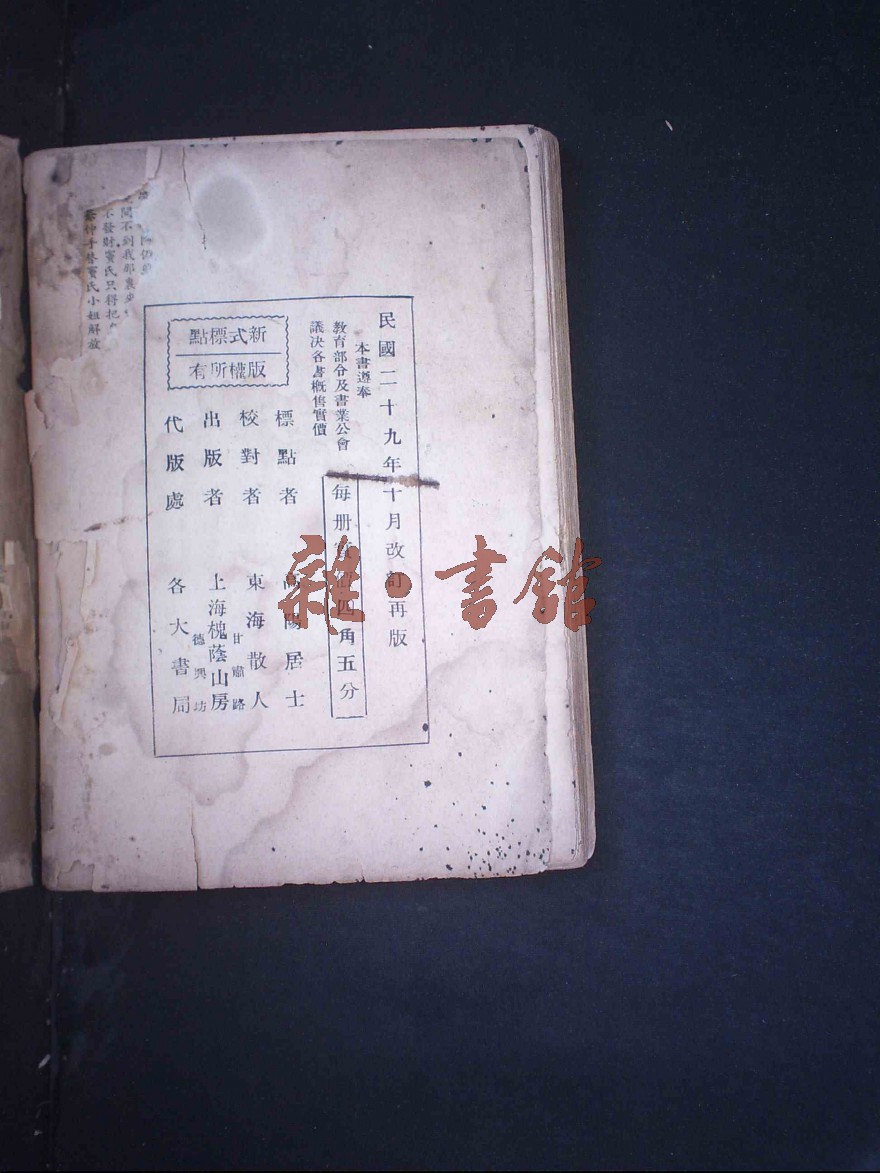 民國二十九年十月改訂再版
本書遵奉
教育部令及書業公會
議決各書概售實價
每册 四角五分
新式標點
版權所有
標點者 陽居士
校對者 東海散人
出版者 上海槐蔭山房
甘肅路
德興坊
代版處 各大書局
聞不到我那裏來，
不發財竇氏只得把
替竇氏小姐解放
雜·書館